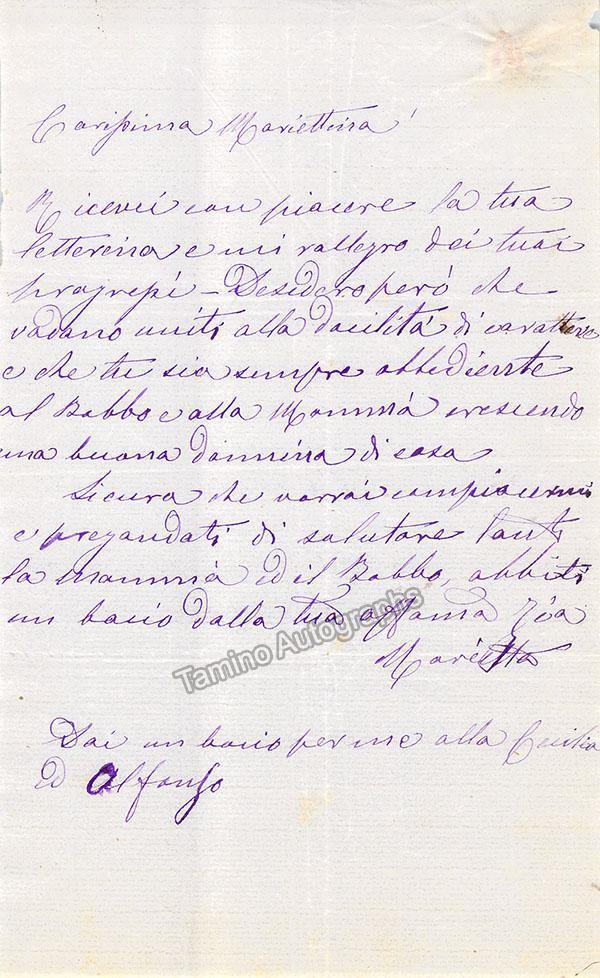 Carissima Mariettina
Ricevei con piacere la tua
letterina e mi rallegro dei tuoi
progressi - Desidero però che
vadano uniti alla docilità di carattere
e che tu sia sempre obbediente
al Babbo e alla Mammà crescendo
una buona donnina di casa
Sicura che vorrai compiacermi
e pregandoti di salutare tanti
la mammà ed il Babbo, abbiti
un bacio dalla tua affama Zia
Marietta
Dai un bacio per me alla Cecilia
ed Alfonso
Tamino Autographs